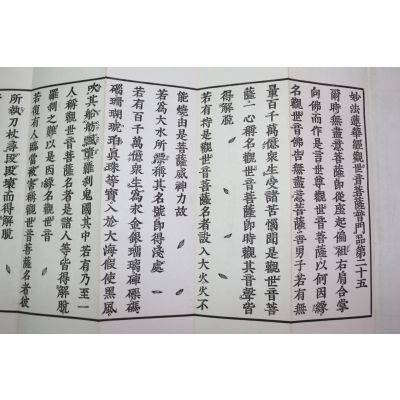 妙法蓮華經觀世音菩薩普門品第二十五
爾時無盡意菩薩即從座起偏袒右肩合掌
向佛而作是言世尊觀世音菩薩以何因緣
名觀世音佛告無盡意菩薩善男子若有無
量百千萬億衆生受諸苦惱聞是觀世音菩
薩一心稱名觀世音菩薩即時觀其音聲皆
得解脫
若有持是觀世音菩薩名者設入大火火不
能燒由是菩薩威神力故
若為大水所漂稱其名號即得淺處
若有百千萬億衆生為求金銀瑠璃硨磲碼
碯珊瑚琥珀真珠等寶入於大海假使黑風
吹其船舫飄墮羅刹鬼國其中若有乃至一
人稱觀世音菩薩名者是諸人等皆得解脫
羅刹之難以是因緣名觀世音
若復有人臨當被害稱觀世音菩薩名者彼
所執刀杖尋段段壞而得解脫